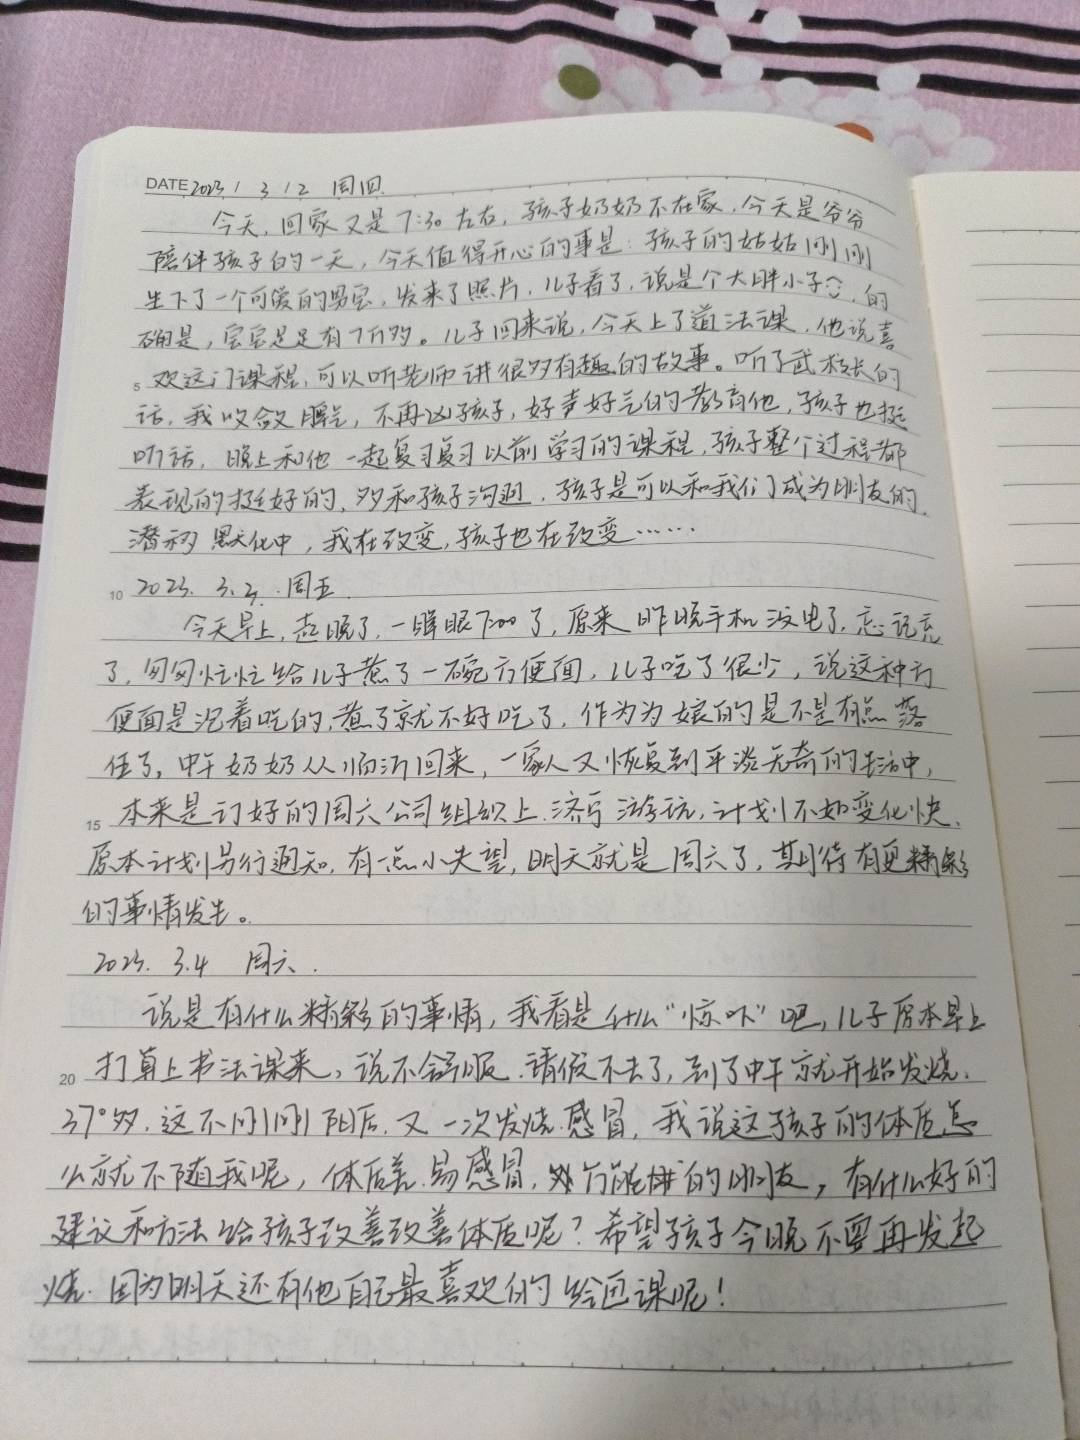 DATE 2023 / 3 / 2 周四.
今天,回家又是7:30左右,孩子奶奶不在家,今天是爷爷
陪伴孩子的一天,今天值得开心的事是:孩子的姑姑刚刚
生下了一个可爱的男宝,发来了照片,儿子看了,说是个大胖小子,的
确是,宝宝足足有7斤多。儿子回来说,今天上了道法课,他说喜
5 欢这门课程,可以听老师讲很多有趣的故事。听了武校长的
话,我收敛脾气,不再凶孩子,好声好气的教育他,孩子也挺
听话,晚上和他一起复习复习以前学习的课程,孩子整个过程都
表现的挺好的,多和孩子沟通,孩子是可以和我们成为朋友的,
潜移默化中,我在改变,孩子也在改变……
10 2023. 3.3. 周五.
今天早上,起晚了,一睁眼7:00了,原来昨晚手机没电了,忘记充
了,匆匆忙忙给儿子煮了一碗方便面,儿子吃了很少,说这种方
便面是泡着吃的,煮了就不好吃了,作为为娘的是不是有点落
伍了,中午奶奶从临沂回来,一家人又恢复到平淡无奇的生活中,
15 本来是订好的周六公司组织上济宁游玩,计划不如变化快,
原本计划另行通知,有一点小失望,明天就是周六了,期待有更精彩
的事情发生。
2023. 3.4 周六.
说是有什么精彩的事情,我看是什么“惊吓”吧,儿子原本早上
20 打算上书法课来,说不舒服,请假不去了,到了中午就开始发烧,
37°多,这不刚刚阳后,又一次发烧感冒,我说这孩子的体质怎
么就不随我呢,体质差,易感冒,的朋友,有什么好的
建议和方法给孩子改善改善体质呢?希望孩子今晚不要再发起
烧,因为明天还有他自己最喜欢的绘画课呢!